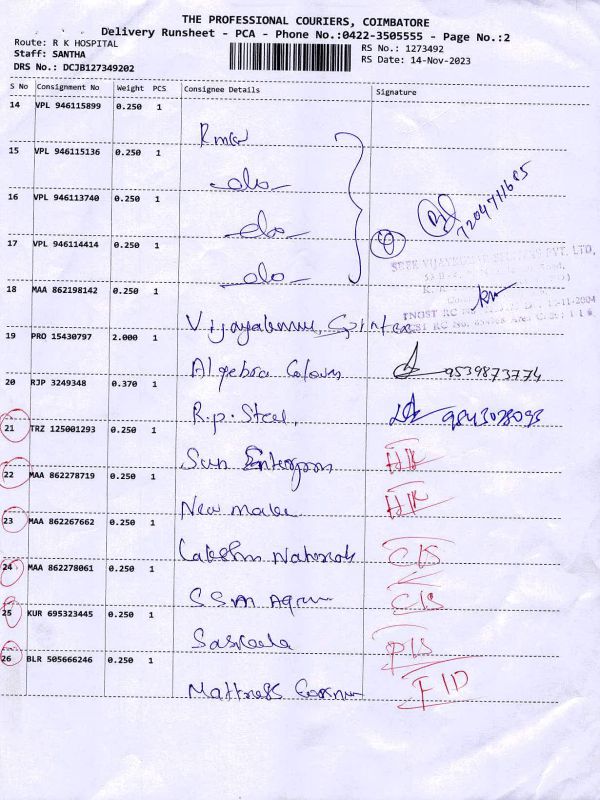 THE PROFESSIONAL COURIERS, COIMBATORE
Delivery Runsheet - PCA - Phone No.:0422-3505555 - Page No.:2
Route: R K HOSPITAL
RS No.: 1273492
Staff: SANTHA
RS Date: 14-Nov-2023
DRS No.: DCJB127349202
S No Consignment No Weight PCS Consignee Details Signature
14 VPL 946115899 0.250 1
15 VPL 946115136 0.250 1
do
16 VPL 946113740 0.250 1
do
7204711685
17 VPL 946114414 0.250 1
do
4
18 MAA 862198142 0.250 1
Vijayalaxmi Spintex
19 PRO 15430797 2.000 1
Algebra Colours 9539873774
20 RJP 3249348 0.370 1
R.P. Steel, 9843078093
21 TRZ 125001293 0.250 1
Sun Enterprises
22 MAA 862278719 0.250 1
New
23 MAA 862267662 0.250 1
Lakshmi
24 MAA 862278061 0.250 1
S S M
25 KUR 695323445 0.250 1
26 BLR 505666246 0.250 1
Mattress